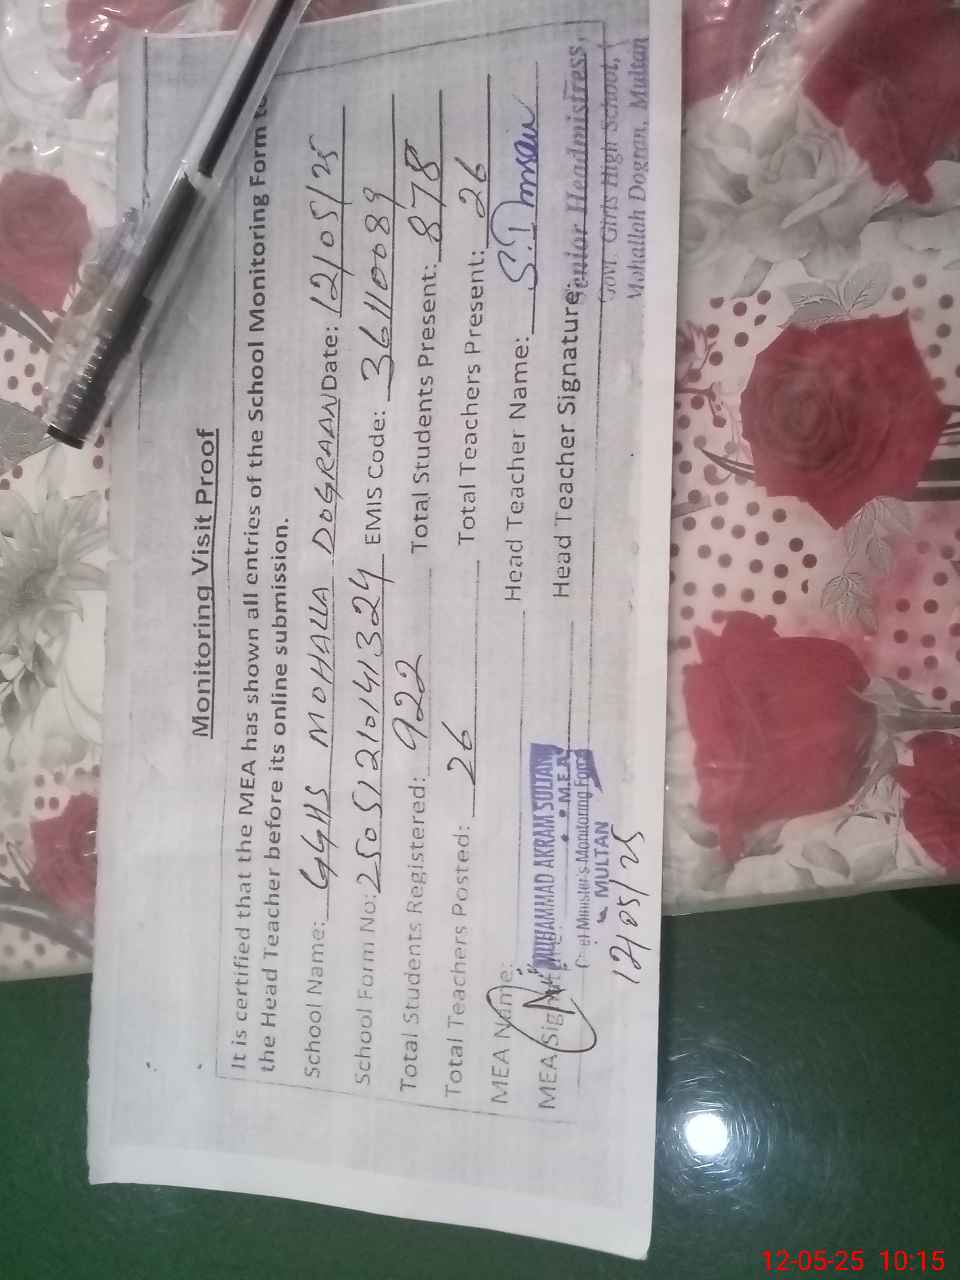 Monitoring Visit Proof
It is certified that the MEA has shown all entries of the School Monitoring Form to
the Head Teacher before its online submission.
School Name: GGHS MOHALLA DOGRAAN Date: 12/05/25
School Form No: 25051210141324 EMIS Code: 36110089
Total Students Registered: 922 Total Students Present: 878
Total Teachers Posted: 26 Total Teachers Present: 26
MEA Name: MUHAMMAD AKRAM SULTAN Head Teacher Name:
M.E.A
MEA Head Teacher Signature: Senior Headmistress,
Minister's Monitoring Force Govt. Girls High School,
MULTAN Mohallah Dogran, Multan
12/05/25
12-05-25 10:15